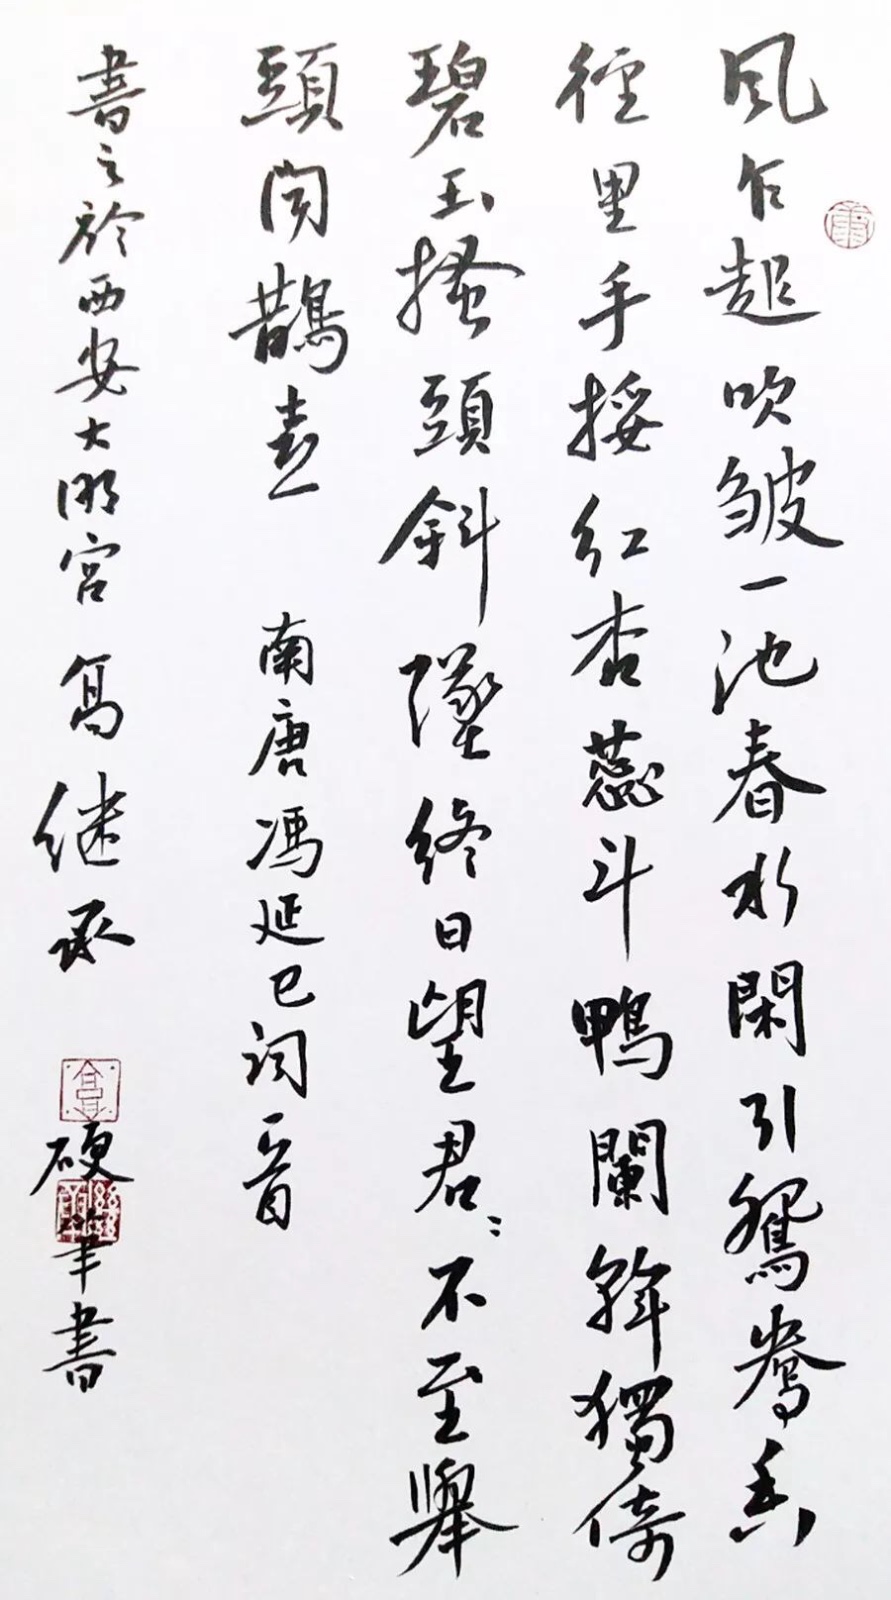 風乍起吹皺一池春水閑引鴛鴦香
徑里手挼紅杏蕊斗鴨闌斡獨倚
碧玉搔頭斜墜終日望君君不至舉
頭闻鵲喜 南唐馮延巳詞一首
書之於西安大明宮 寫继承 硬笔書